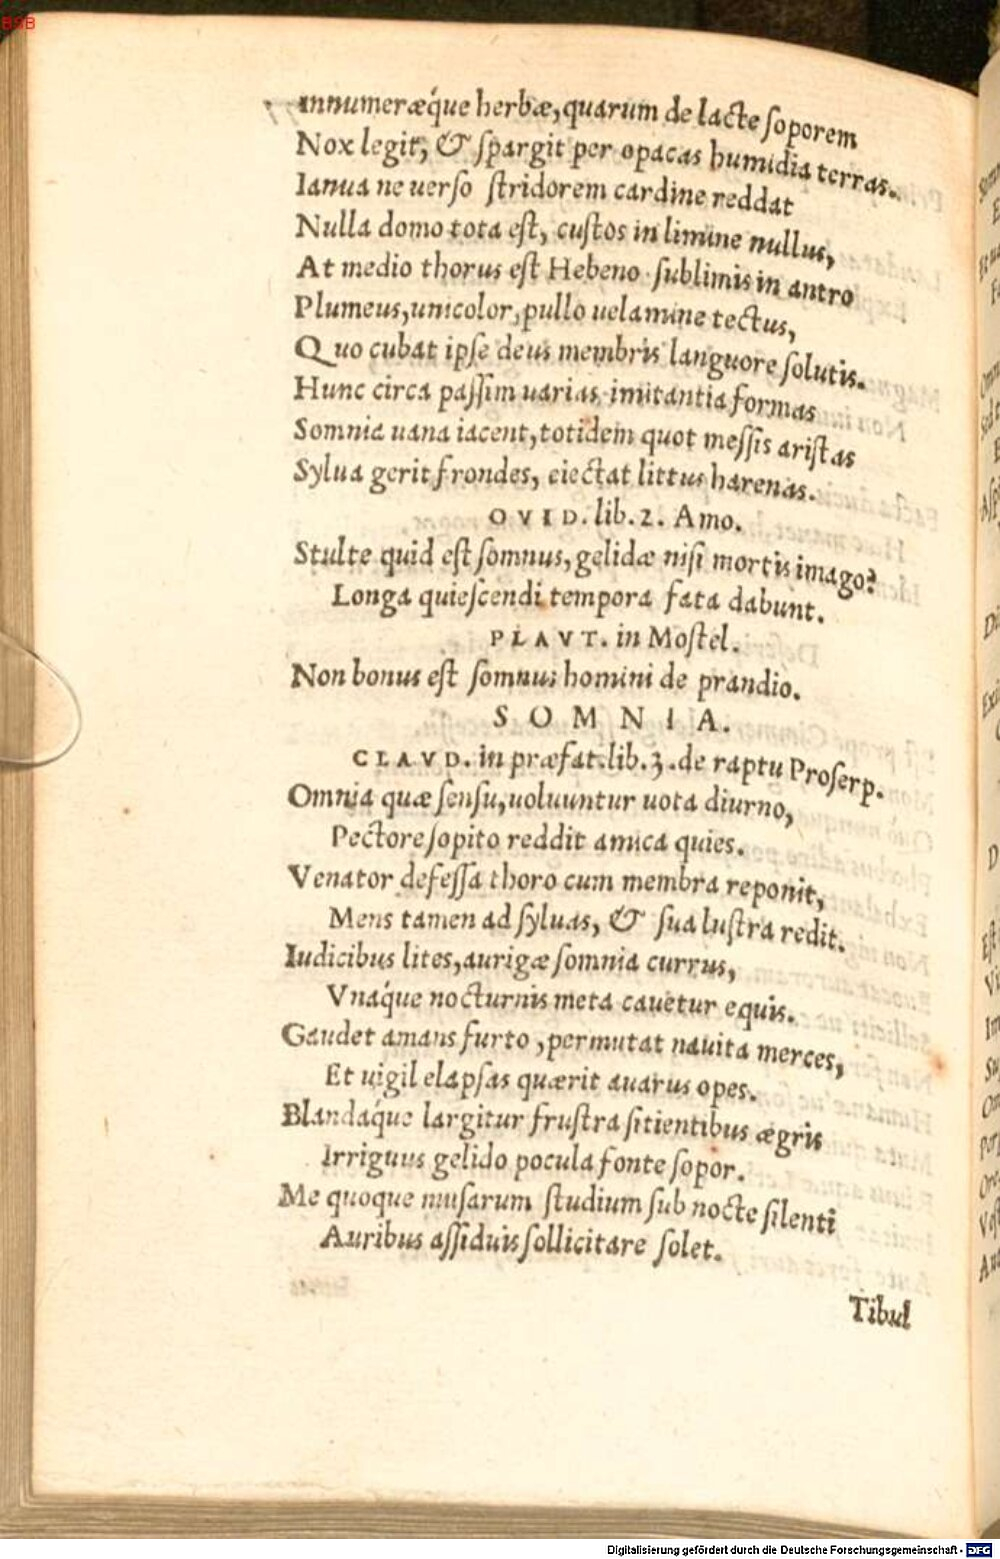 Innumeræq́ue herbæ, quarum de lacte soporem
Nox legit, & spargit per opacas humidia terras.
Ianua ne uerso stridorem cardine reddat
Nulla domo tota est, custos in limine nullus,
At medio thorus est Hebeno sublimis in antro
Plumeus, unicolor, pullo uelamine tectus,
Quo cubat ipse deus membris languore solutis.
Hunc circa passim uarias imitantia formas
Somnia uana iacent, totidem quot messis aristas
Sylua gerit frondes, eiectat littus harenas.
OVID. lib. 2. Amo.
Stulte quid est somnus, gelidæ nisi mortis imago?
Longa quiescendi tempora fata dabunt.
PLAVT. in Mostel.
Non bonus est somnus homini de prandio.
SOMNIA.
CLAVD. in præfat. lib. 3. de raptu Proserp.
Omnia quæ sensu, uoluuntur uota diurno,
Pectore sopito reddit amica quies.
Venator defessa thoro cum membra reponit,
Mens tamen ad syluas, & sua lustra redit.
Iudicibus lites, aurigæ somnia currus,
Vnáque nocturnis meta cauetur equis.
Gaudet amans furto, permutat nauita merces,
Et uigil elapsas quærit auarus opes.
Blandáque largitur frustra sitientibus ægris
Irriguus gelido pocula fonte sopor.
Me quoque musarum studium sub nocte silenti
Auribus assiduis sollicitare solet.
Tibul
BSB
Digitalisierung gefördert durch die Deutsche Forschungsgemeinschaft - DFG